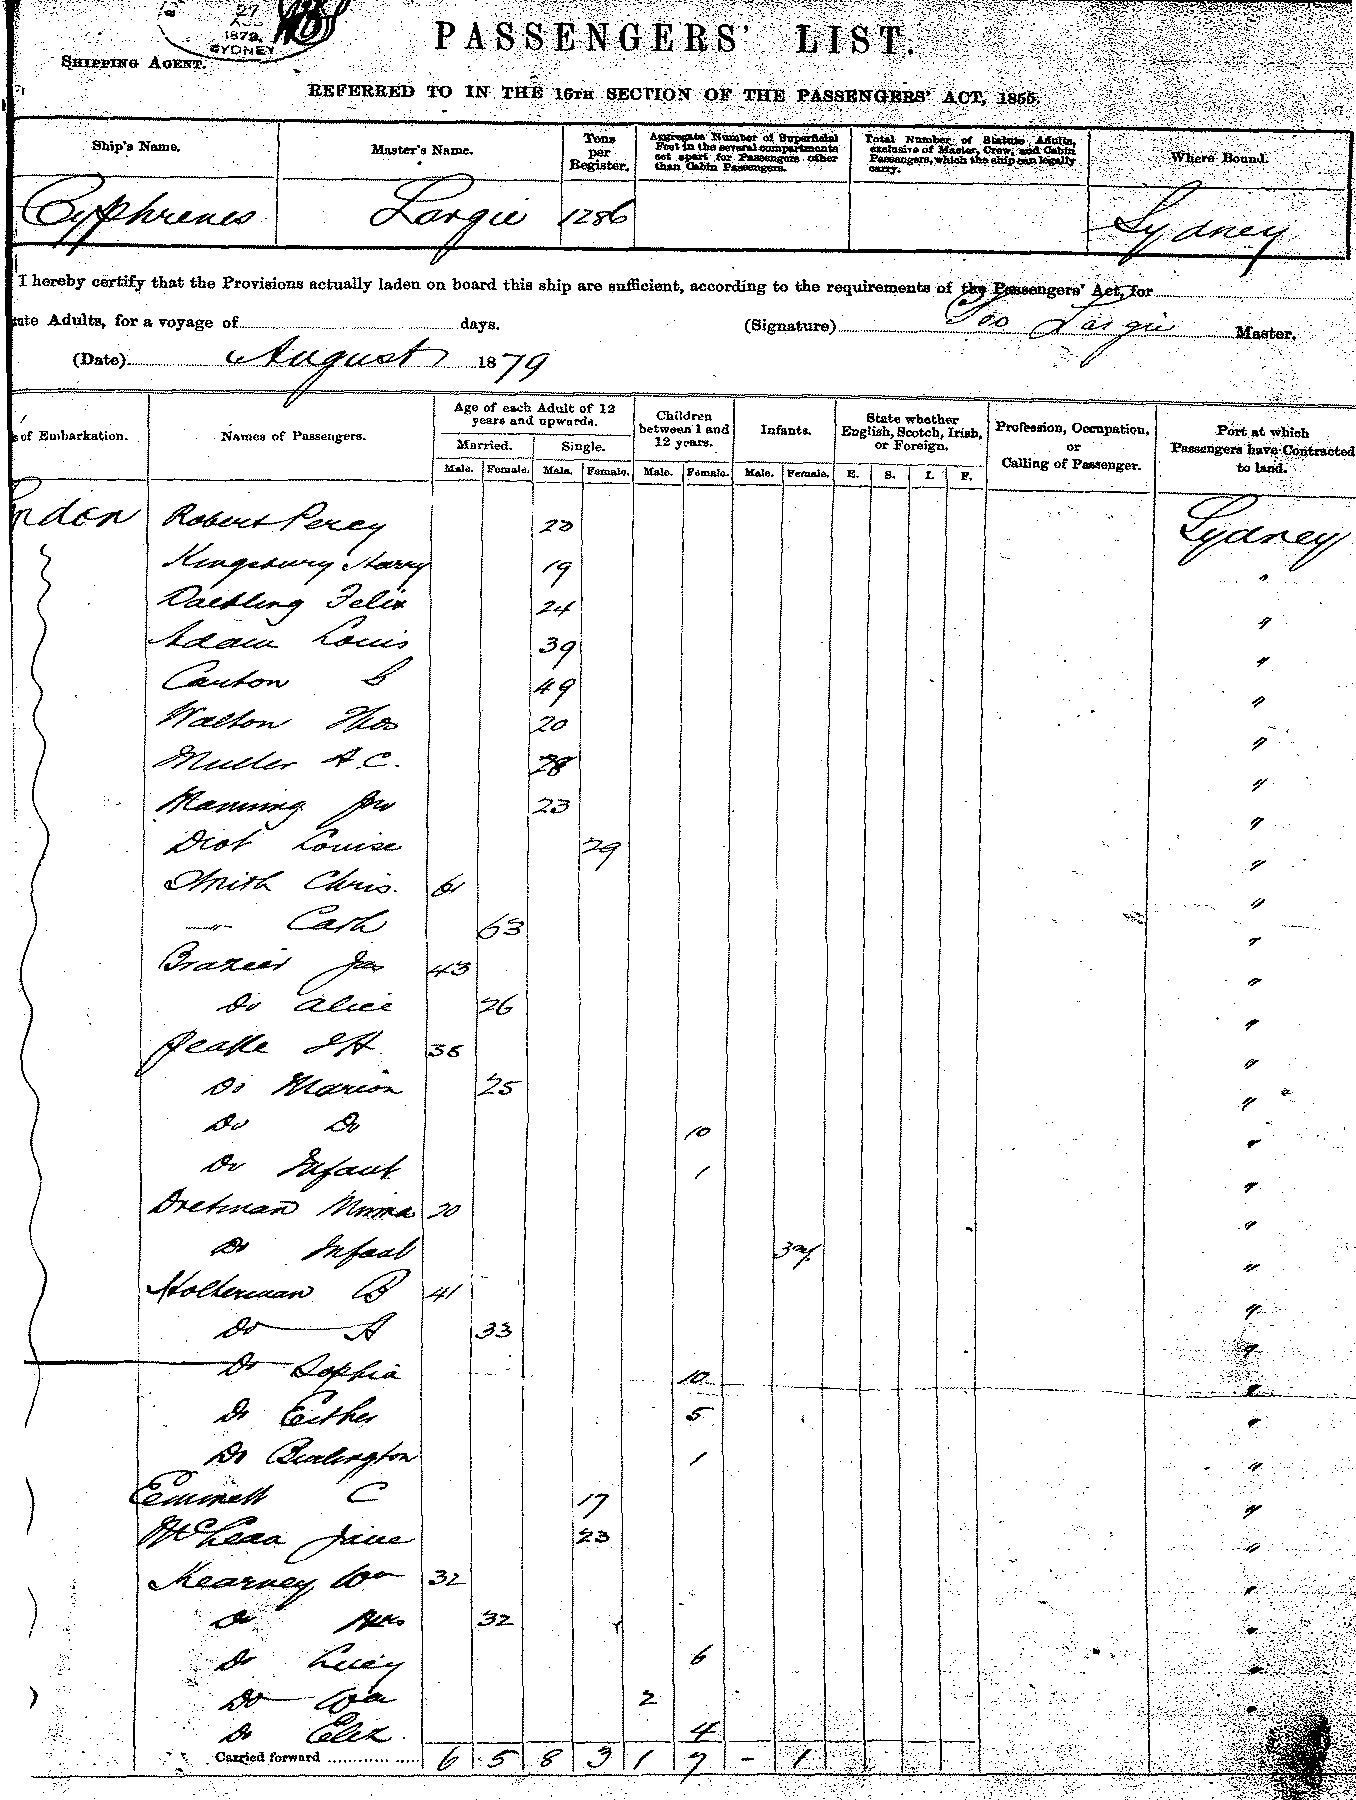 27
1879.
SYDNEY
SHIPPING AGENT.
PASSENGERS' LIST.
REFERRED TO IN THE 16TH SECTION OF THE PASSENGERS' ACT, 1855.
Ship's Name. Master's Name. Tons per Register. Aggregate Number of Superficial Feet in the several compartments set apart for Passengers other than Cabin Passengers. Total Number of Statute Adults, exclusive of Master, Crew, and Cabin Passengers, which the ship can legally carry. Where Bound.
Cyphrenes Largie 1286 Sydney
I hereby certify that the Provisions actually laden on board this ship are sufficient, according to the requirements of the Passengers' Act, for
Adults, for a voyage of days. (Signature) Largie Master.
(Date) August 1879
of Embarkation. Names of Passengers. Age of each Adult of 12 years and upwards. Children between 1 and 12 years. Infants. State whether English, Scotch, Irish, or Foreign. Profession, Occupation, or Calling of Passenger. Port at which Passengers have Contracted to land.
Married. Single.
Male. Female. Male. Female. Male. Female. Male. Female. E. S. I. F.
ndon Robert Percy 23 Sydney
Kingsbury Harry 19 "
Daehling Felix 24 "
Adam Louis 39 "
Caxton 49 "
Walton Thos 20 "
Muller A C. 28 "
Manning Jno 23 "
Diot Louise 29 "
Smith Chris. 61 "
" Cath 63 "
Brazier Jas 43 "
Do Alice 26 "
Peake J H 35 "
Do Marion 25 "
Do Do 10 "
Do Infant 1 "
Dretman Minna 20 "
Do Infant 3 "
Holterman B 41 "
Do A 33 "
Do Sophia 10 "
Do Esther 5 "
Do Burlington 1 "
Emmett C 17 "
McLean Jane 23 "
Kearney Wm 32 "
Do Mrs 32 "
Do Lucy 6 "
Do Wm 2 "
Do Eliz. 4
Carried forward 6 5 8 3 1 7 - 1